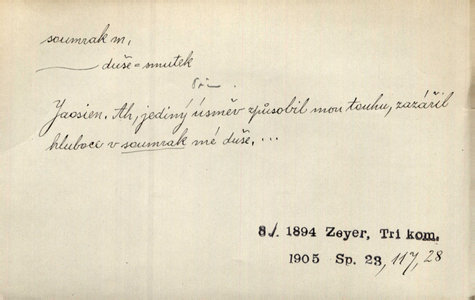 soumrak m,
duše = smutek
Jaosien. Ah, jediný úsměv způsobil mou touhu, zazářil
hluboce v soumrak mé duše. ...
8/. 1894 Zeyer, Tri kom.
1905 Sp. 23, 117, 28